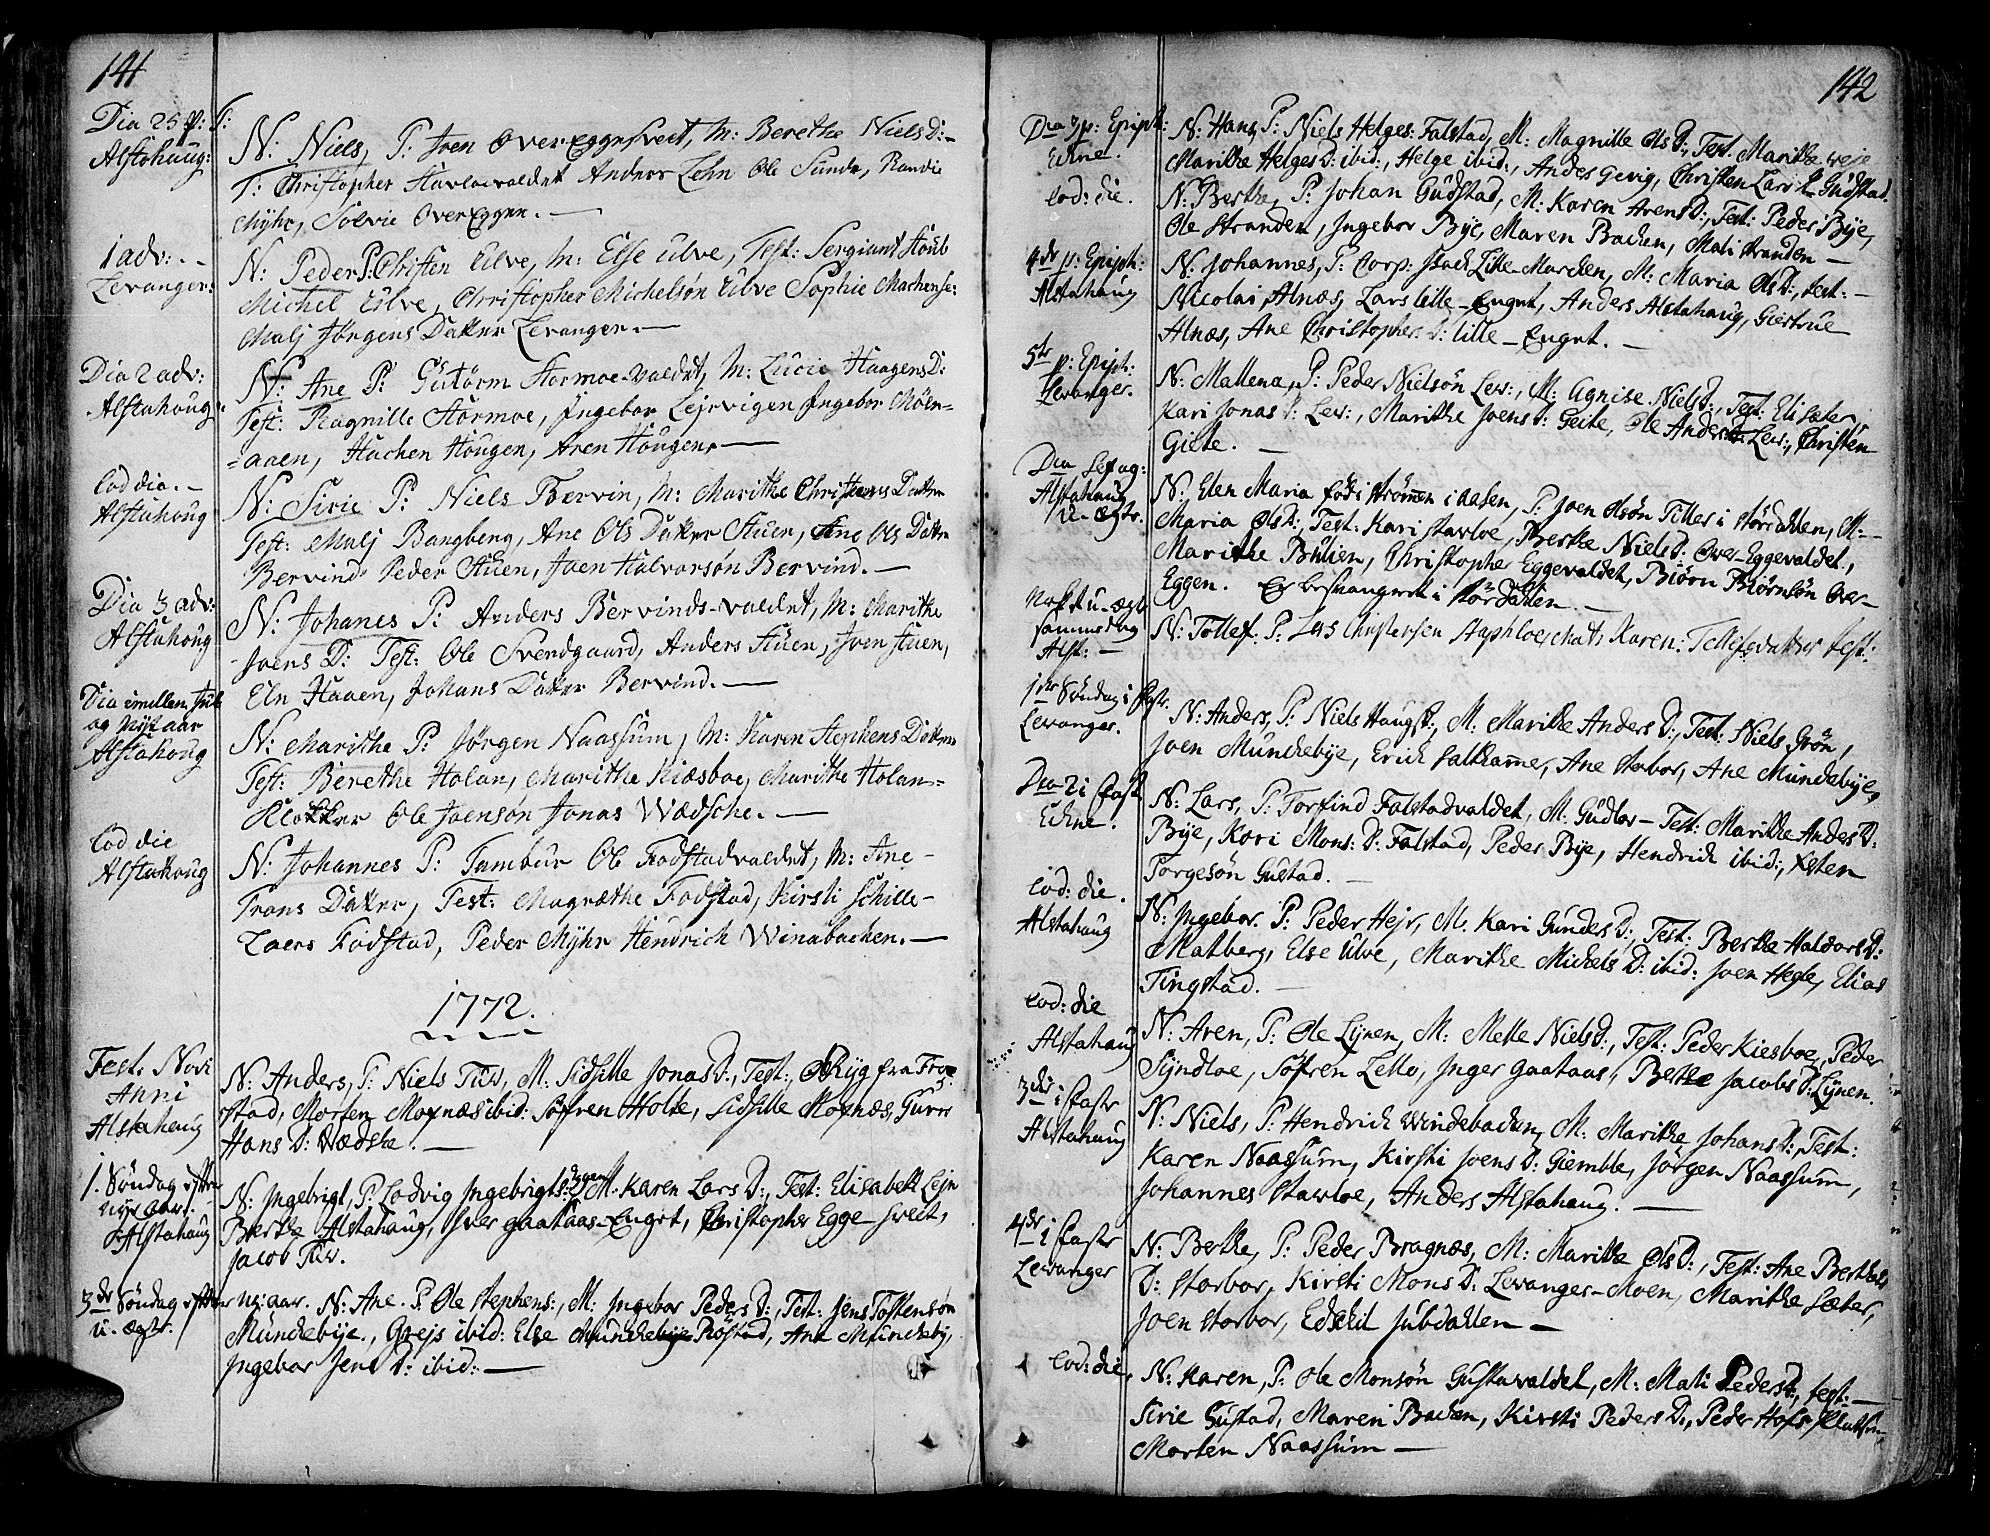 141
Dia 25 p: T:
Alstahoug:
N: Niels, P: Joen Over Eggesveet, M: Berethe Niels D:
T: Christopher Stavloevaldet Anders Lehn Ole Sunde, Randie
Myhr, Solvie Over Eggen. —
1 adv: —
Levanger:
N: Peder P: Christen Ulve, M: Else Ulve, Test: Sergiant Stoub
Michel Eilve, Christopher Michelsøn Eilve Sophie
Malj Jørgens Datter Levanger. —
Dia 2 adv:
Alstahoug:
N: Ane P: Gutørm Stormoe-valdet, M: Lucie Haagens D:
Test: Ragnille Stormoe, Ingebor Lejrvigen Ingebor Moen-
=aaen, Hachen Hougen, Aren Hougen, —
Eod die. —
Alstahoug
N: Sirie P: Niels Bervin, M: Marithe Christens Datter
Test: Malj Bangberg, Ane Ols Datter Stuen, Ane Ols Dattr
Bervind Peder Stuen, Joen Halvorsøn Bervind. —
Dia 3 adv:
Alstahoug
N: Johanes P: Anders Bervinds-valdet, M: Marithe
Joens D: Test: Ole Svendgaard, Anders Stuen, Joen Stuen,
Eln Haaen, Johans Datter Bervind. —
Dia imellem Jul
og Nyt aar
Alstahoug
N: Marithe P: Jörgen Naassum, M: Karen Stephens Datter
Test: Berethe Holan, Marithe Kiæsboe, Marithe Holan-
Klokker Ole Joensøn Jonas Wædsche. —
Eod die
Alstahoug
N: Johannes P: Tambur Ole Fodstadvaldet, M: Ane-
Frans Datter, Test: Magrethe Fodstad, Kirsti Schille-
Laers Fodstad, Peder Myhr Hendrich Winabachen. —
1772.
Fest: Novi
Anni
Alstahaug
N: Anders, P: Niels Tuv, M: Sidsille Jonas D:, Test: Ryg fra Fro-
stad, Morten Mopnæs ibid: Søfren Holte, Sidsille Mopnæs, Guru
Hans D: Wædske. —
1. Søndag efter
nyt aar.
Alstahaug
N: Ingebrigt, P: Lodvig Ingebrigts: M: Karen Lars D:, Test: Elisabeth Lejn
Berthe Alstahaug, Iver gaataas-Enget, Christopher Egge sveet,
Jacob Tuv.
3die Søndag efter
u. ægtr.
ny: aar. N: Ane. P: Ole Stephens:, M: Ingebor Peders D:, Test: Jens Tostensøn
Münckebye., Grejs ibid: Else Münckebye Røstad, Ane Münckeby,
Ingebor Jens D: ibid: —
142
Dca 3 p: Epiph:
Echne.
N: Hans, P: Niels Helges: Falstad, M: Magnille Ols D:, Test. Marithe Weje
Marithe Helges D: ibid:, Helge ibid:, Andes Gevig, Christen Lars Gudstad.
Eod: die.
N: Berthe, P: Johan Gudstad, M: Karen Arens D:, Test: Peder Bye,
Ole Stranden, Ingebor Bye, Maren Backen, Mali Stranden —
4de p: Epiph:
Alstahaug
N: Johannes, P: Corp: Isach Lille-Marcken, M: Maria Ols D:, test: —
Nicolai Alnæs, Lars lille-Enget, Anders Alstahaug, Giertrue
Alnæs, Ane Christopher: D: lille-Enget. —
5te p: Epiph:
Levanger.
N: Mallena, P: Peder Nielsøn Lev:, M: Agnise Niels D:, Test: Eli Sæter,
Kari Jonas D: Lev:, Marithe Joens D: Geite, Ole Anders: Lev:, Christen
Giete. —
Dca Sexag:
Alstahaug
u-ægtr.
N: Elen Maria født i Strømen i aasen, P: Joen Olsøn Tilles i Størdahlen, M: —
Maria Ols D:, Test: Kari Stavloe, Berthe Niels D: Over-Eggevaldet,
Marithe Bulien, Christopher Eggevaldet, Biørn Biørnsøn Over-
Eggen. Er beskangeret i Størdahlen. —
Nok 1 u-ægt
sammedag
Alst: —
N: Tollef. P: Lars Christersen Staphloe, Karen: Tollefsdatter test:
1ste Søndag i Faste.
Levanger.
N: Anders, P: Niels Haugst:, M: Marithe Anders D:, Test: Niels Grøn,
Joen Münckebye, Erich Saltkanne, Ane Storbor, Ane Münckebye,
Dca 2 i Fast
Echne.
N: Lars, P: Torfind Falstadvaldet, M: Gudlov — Test: Marithe Andes D:
Bye, Kari Mons: D: Falstad, Peder Bye, Hendrich ibid:, Esten
Torgesøn Gustad. —
Eod: die.
Alstahaug
N: Ingebor. P: Peder Hejr, M: Kari Gundes D:, Test: Berthe Haldors D:
Matberg, Else Ulve, Marithe Mickels D: ibid: Joen Hegle, Elias
Tingstad. —
Eod: die
Alstahaug
N: Aren, P: Ole Lynen, M: Mette Niels D:, Test: Peder Kiesboe, Peder
Syndloe, Søfren Zello, Inger Gaataas, Berthe Jacobs D: Lynen.
3die i Faste
Alstahaug
N: Niels, P: Hendrich Windebacken, M: Marithe Johans D: Test:
Karen Naassum, Kirsti Joens D: Giemble, Jørgen Naassum,
Johannes Stavloe, Anders Alstahaug. —
4de i Faste
Levanger
N: Berthe, P: Peder Bragnæs, M: Marithe Ols D:, Test: Ane Berthels
D: Storbor, Kirsti Mons D: Levanger-Moen, Marithe Sæter,
Joen Storbor, Edschil Julsdahlen —
Eod: die,
N: Karen, P: Ole Monsøn Gustavaldet, M: Mali Peders D:, test: —
Sirie Gustad, Maren Backen, Kirsti Peders D:, Peder Hofs
Morten Naassum —